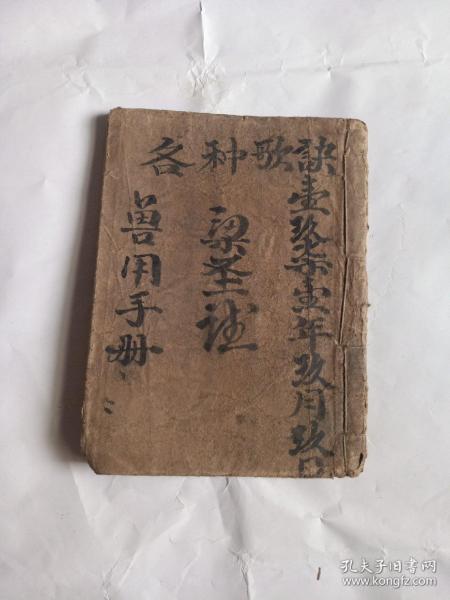 各种歌訣
壹玖柒壹年玖月玖日
梁圣诚
兽用手册
孔夫子旧书网
www.kongfz.com